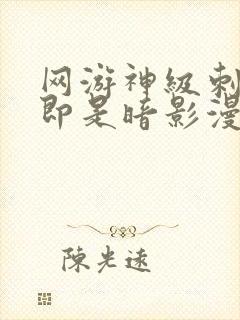 网游神级刺
即是暗影漫
陳光遠